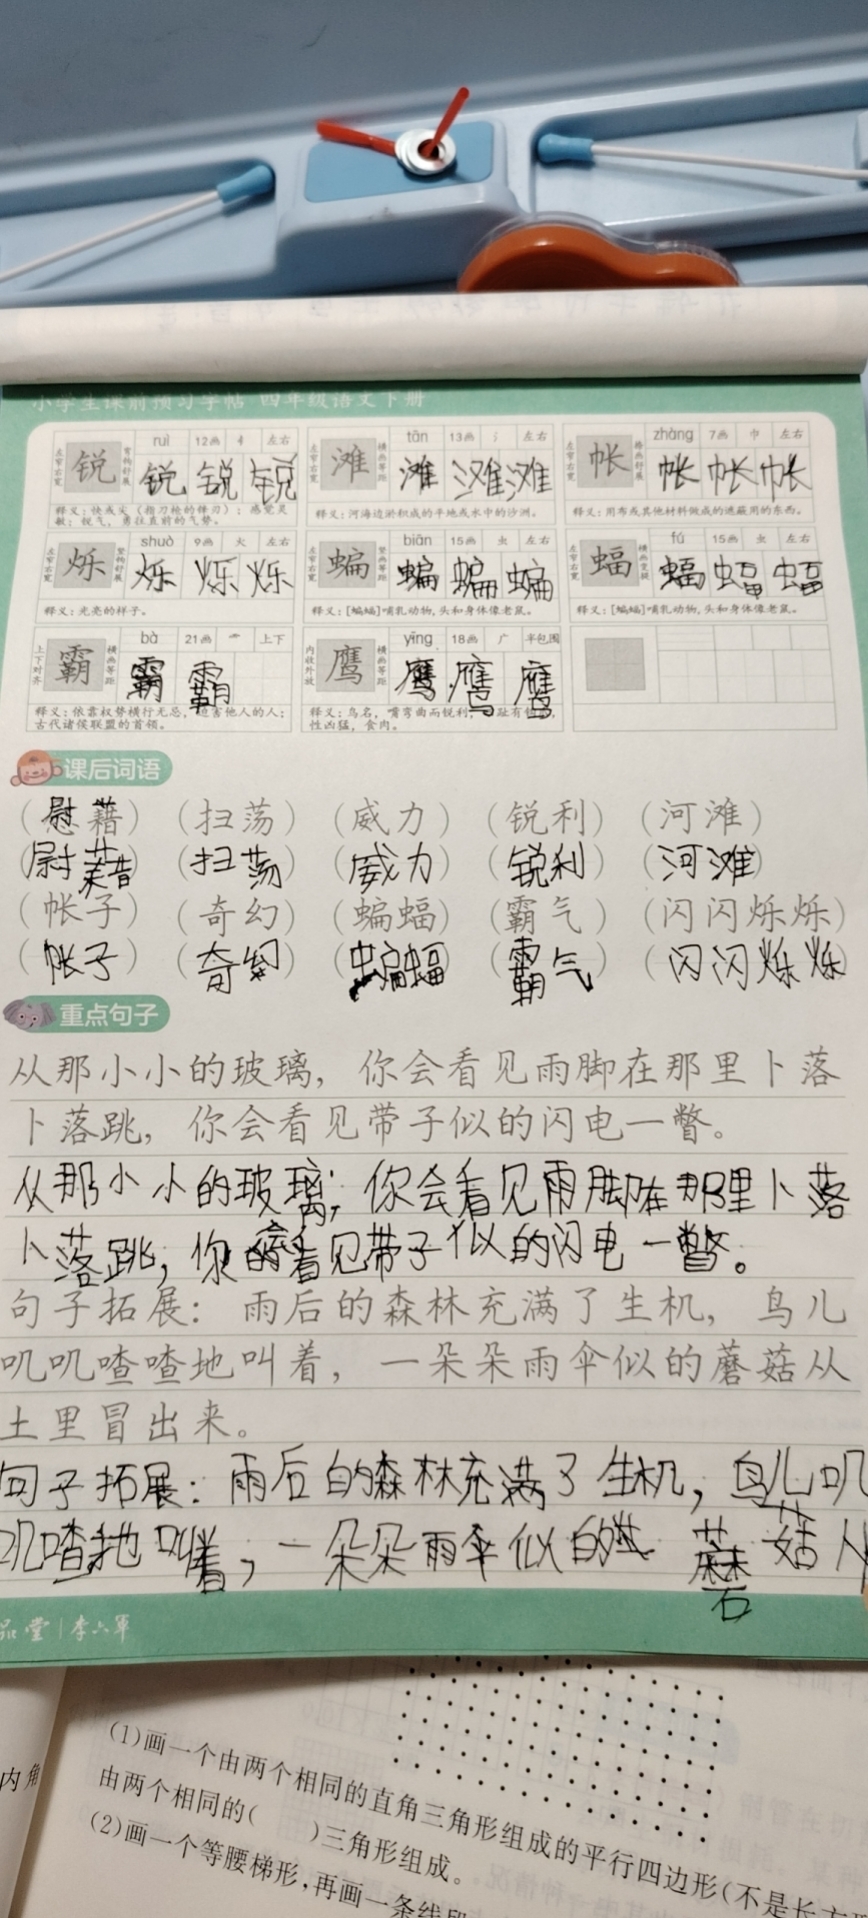 小学生课前预习字帖 四年级语文下册
ruì 12画 钅 左右
左窄右宽 锐 锐 锐 锐
释义：快或尖（指刀枪的锋刃）；感觉灵
敏；锐气，勇往直前的气势。
tān 13画 氵 左右
左窄右宽 滩 横画等距 滩 滩 滩
释义：河海边淤积成的平地或水中的沙洲。
zhàng 7画 巾 左右
左窄右宽 帐 帐 帐 帐
释义：用布或其他材料做成的遮蔽用的东西。
shuò 9画 火 左右
左窄右宽 烁 竖画舒展 烁 烁 烁
释义：光亮的样子。
biān 15画 虫 左右
左窄右宽 蝙 竖画等距 蝙 蝙 蝙
释义：[蝙蝠]哺乳动物，头和身体像老鼠。
fú 15画 虫 左右
左窄右宽 蝠 横画变提 蝠 蝠 蝠
释义：[蝙蝠]哺乳动物，头和身体像老鼠。
bà 21画 上下
上下对齐 霸 横画等距 霸 霸
释义：依靠权势横行无忌，迫害他人的人；
古代诸侯联盟的首领。
yīng 18画 广 半包围
内收外放 鹰 横画等距 鹰 鹰 鹰
释义：鸟名，嘴弯曲而锐利，趾有
性凶猛，食肉。
课后词语
（慰藉）（扫荡）（威力）（锐利）（河滩）
（尉藉）（扫荡）（威力）（锐利）（河滩）
（帐子）（奇幻）（蝙蝠）（霸气）（闪闪烁烁）
（帐子）（奇幻）（蝙蝠）（霸气）（闪闪烁烁）
重点句子
从那小小的玻璃，你会看见雨脚在那里卜落
卜落跳，你会看见带子似的闪电一瞥。
从那小小的玻璃，你会看见雨脚在那里卜落
卜落跳，你会看见带子似的闪电一瞥。
句子拓展：雨后的森林充满了生机，鸟儿
叽叽喳喳地叫着，一朵朵雨伞似的蘑菇从
土里冒出来。
句子拓展：雨后的森林充满了生机，鸟儿叽
叽喳地叫着，一朵朵雨伞似的 蘑菇从
品堂|李六军
(1)画一个由两个相同的直角三角形组成的平行四边形(不是长方
由两个相同的( )三角形组成。
(2)画一个等腰梯形，再画一条线段
内角